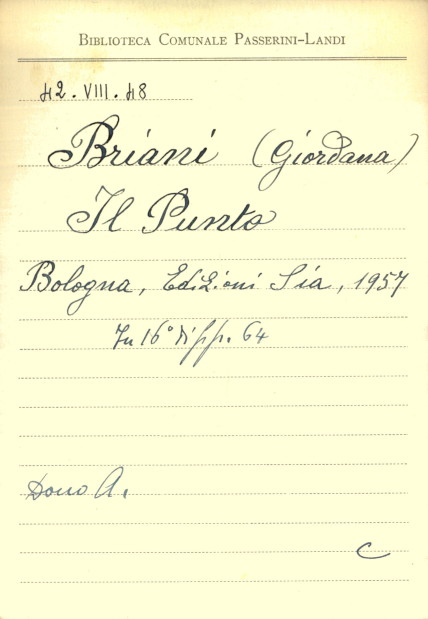 BIBLIOTECA COMUNALE PASSERINI-LANDI
42.VIII.48
Briani (Giordana)
Il Punto
Bologna, Edizioni Sia, 1957
In 16° di pp. 64
Dono A.
C